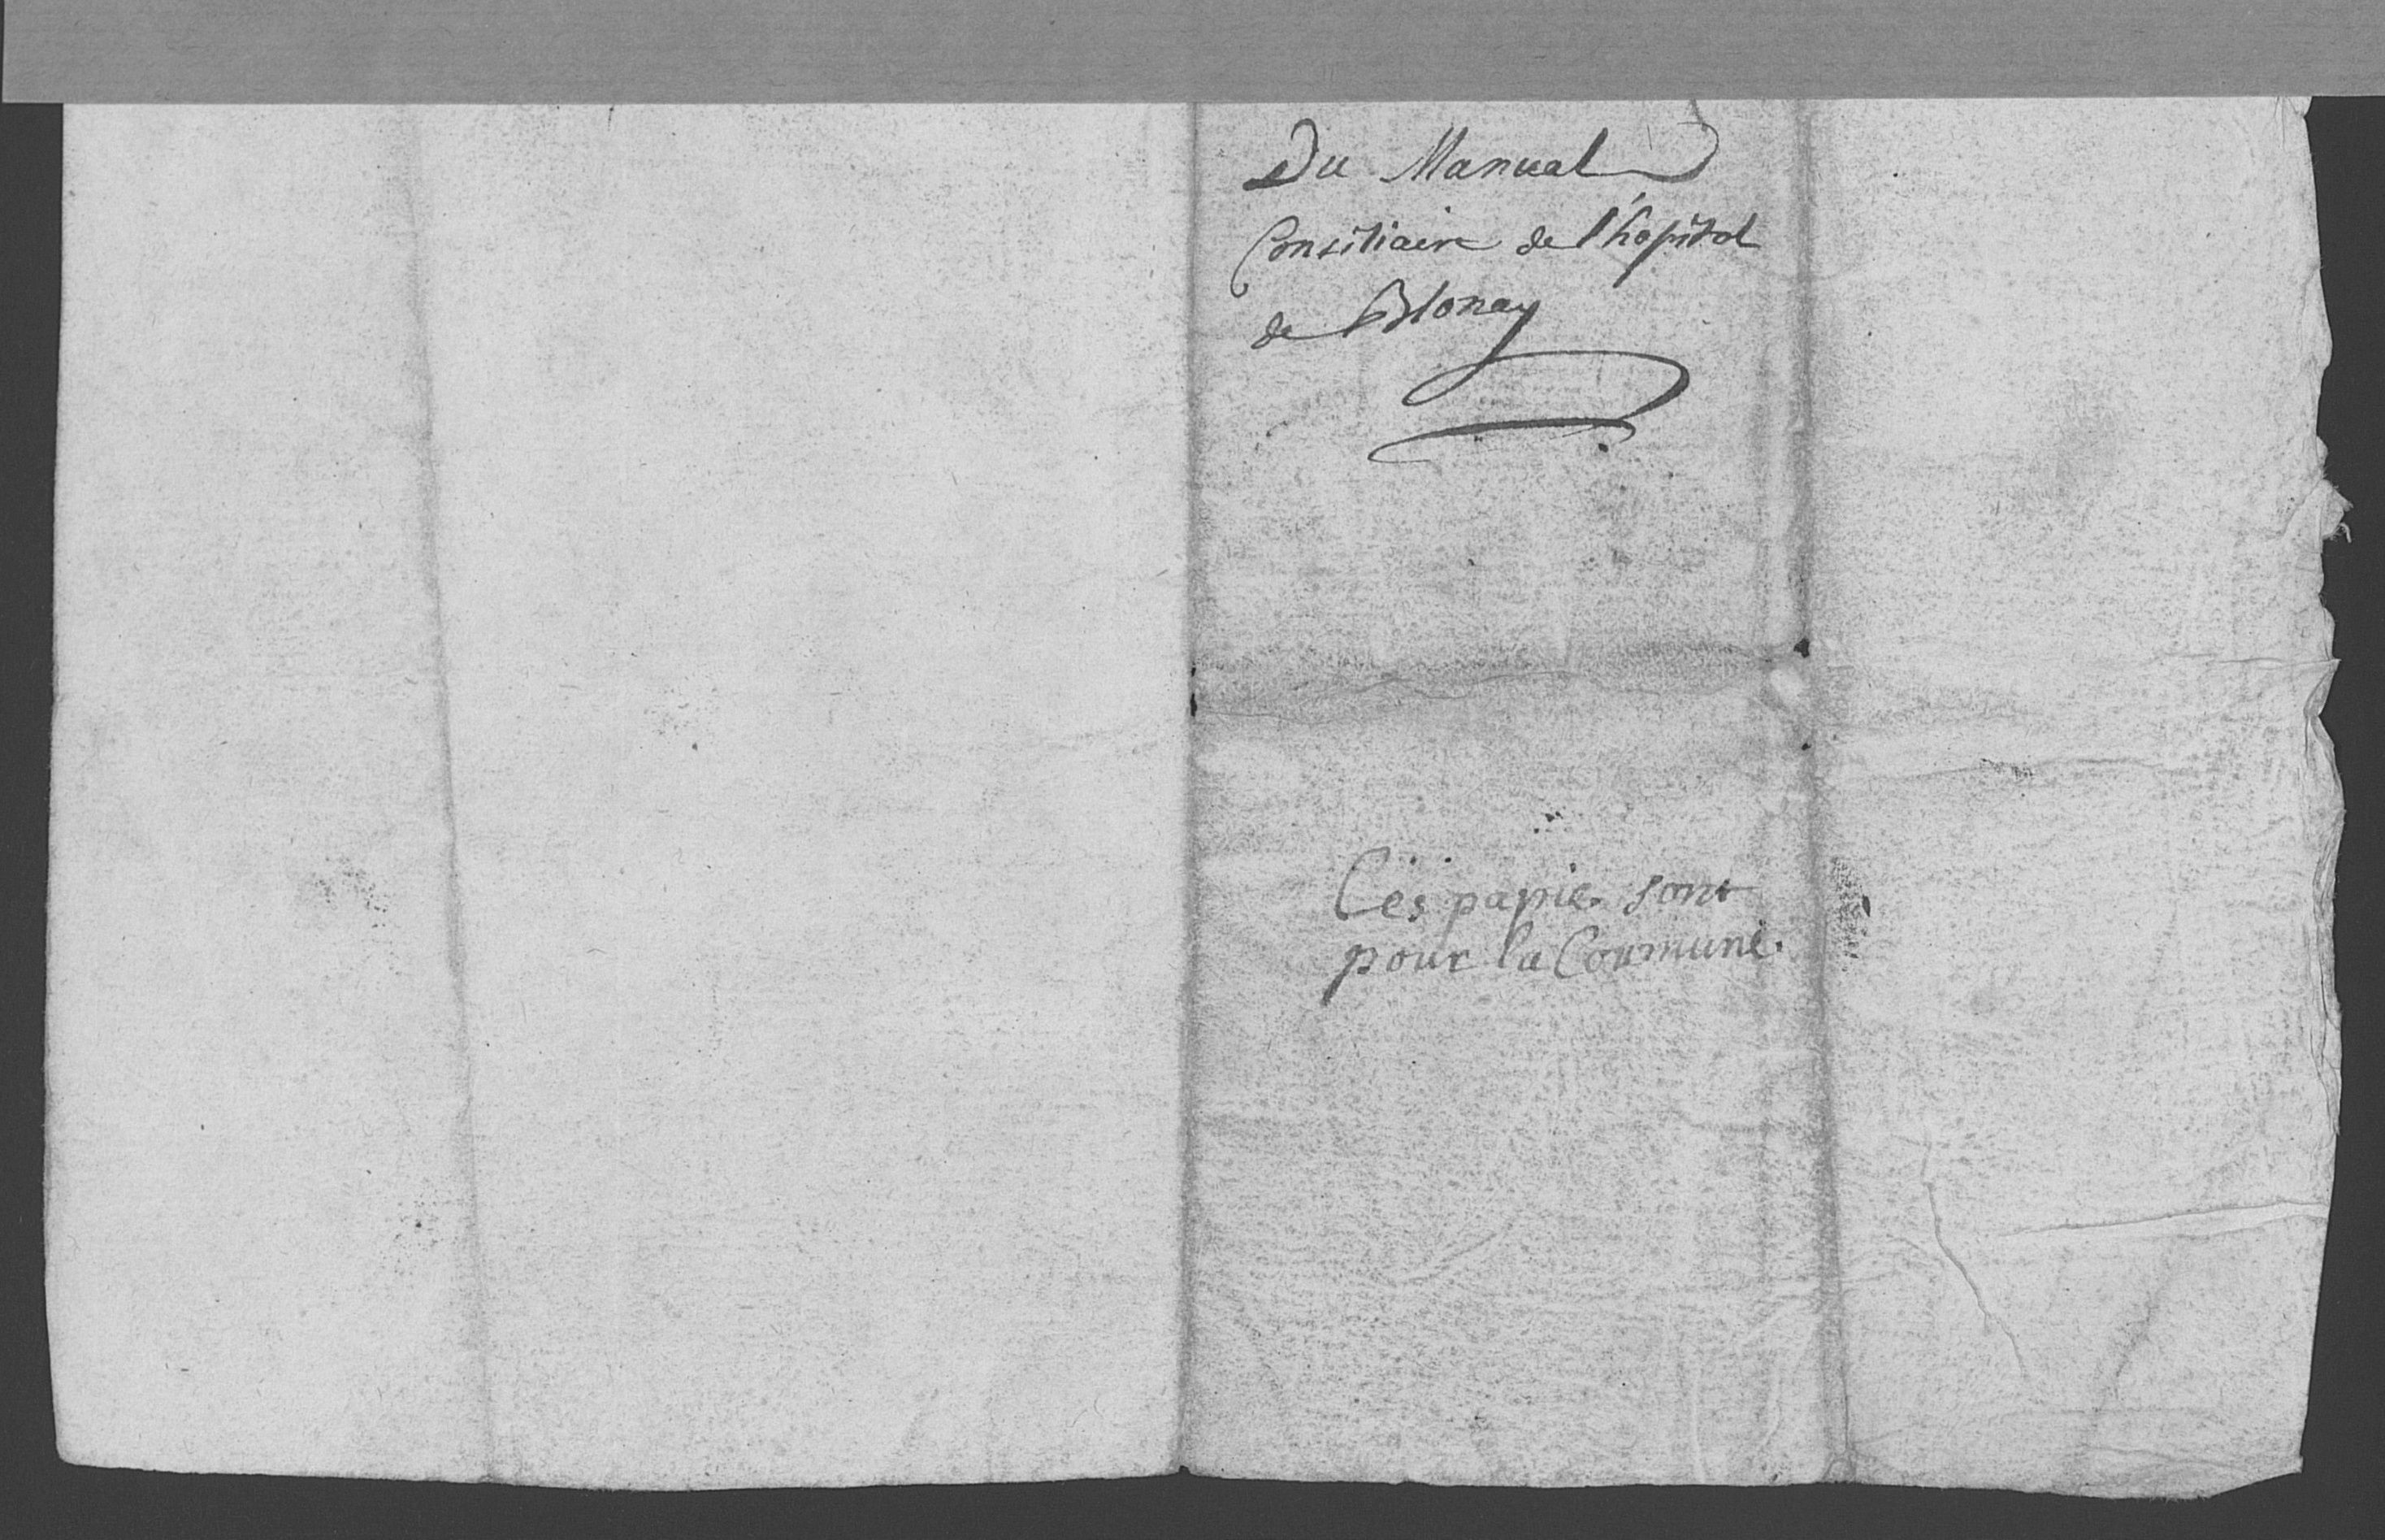 Du Manual
Consiliaire de l'hopital
de Blonay
Ces papie. sont
pour la Commune.